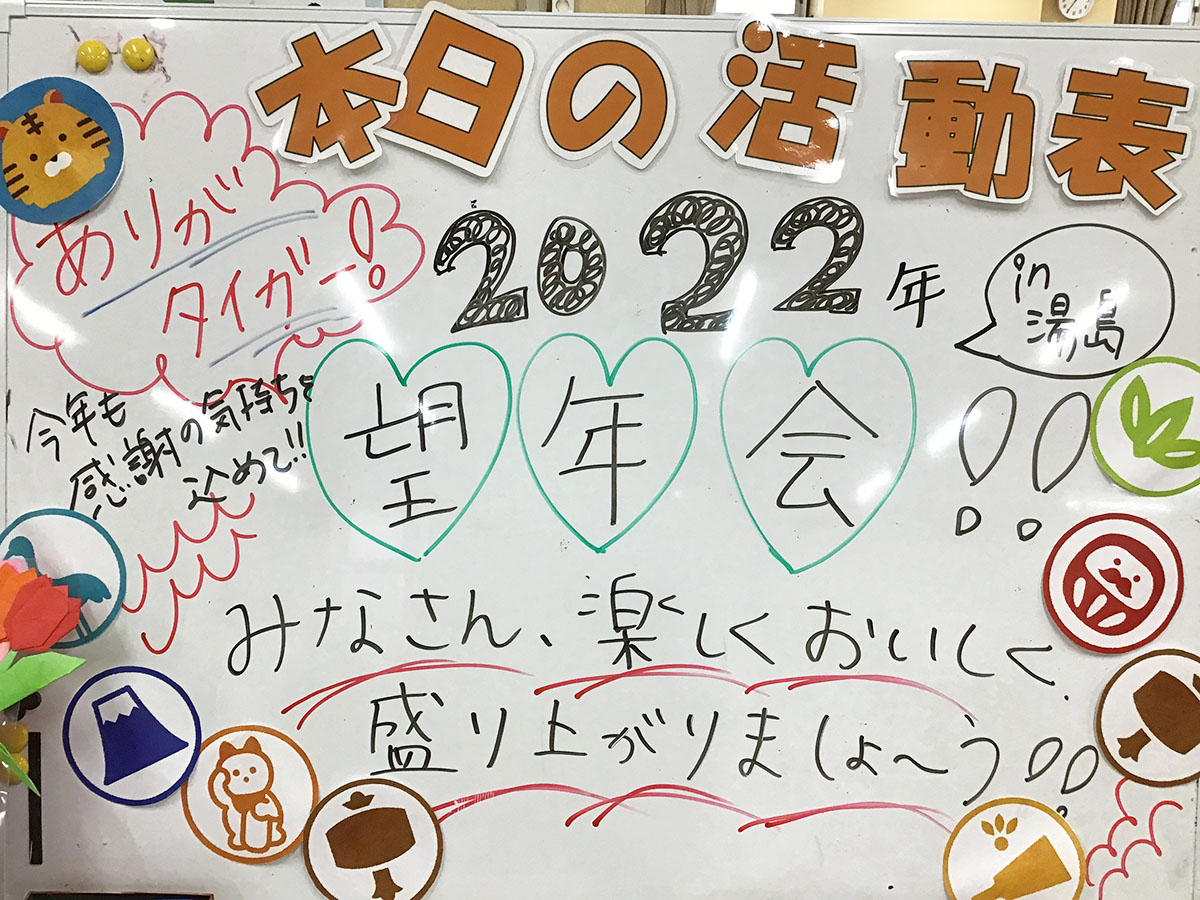 本日の活動表
ありが
タイガー!
2022年
in
湯島
今年も
感謝の気持ちを
込めて!!
望年会!!
みなさん、楽しくおいしく
盛り上がりましょ〜う!!